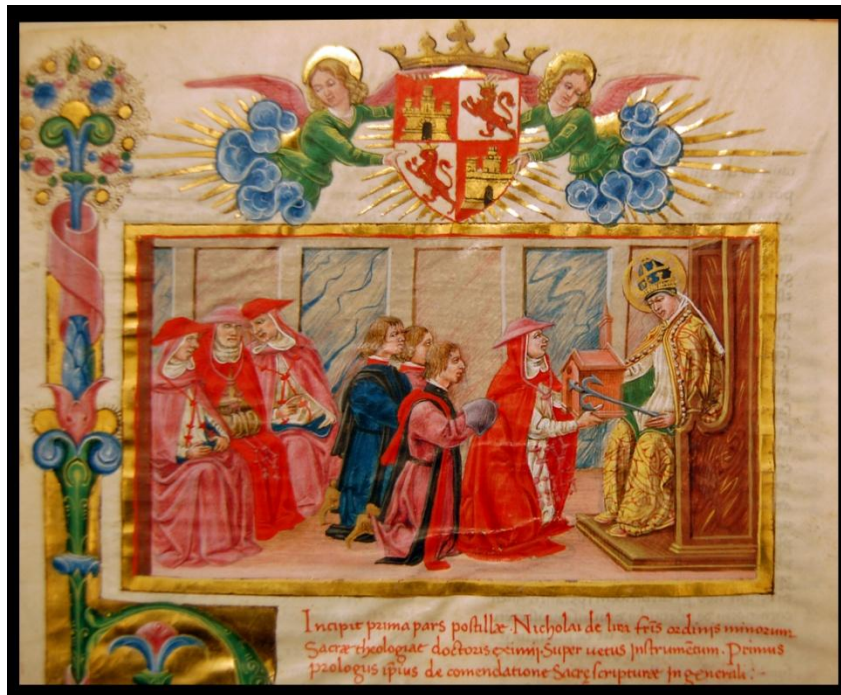 Incipit prima pars postillæ Nicholai de lira fr̄is ordinis minorum
Sacræ theologiae doctoris eximij. Super uetus Instrum̄etum. Primus
prologus ip̄ius de comendatione Sacre scripturæ In generali :~